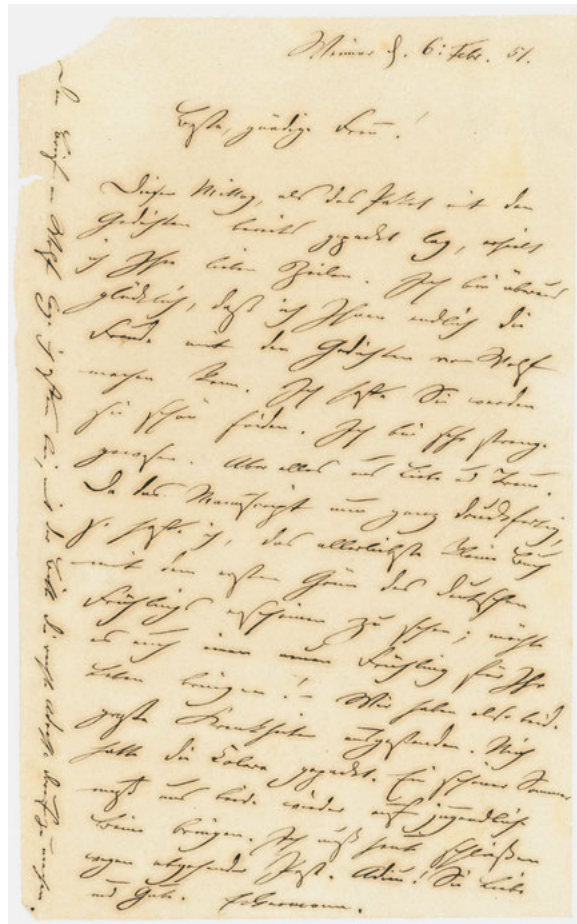 Weimar d. 6: Febr. 51.
Beste, gnädige Frau!
Diesen Mittag, als das Paket mit den
Gedichten bereits gepackt lag, erhielt
ich Ihre lieben Zeilen. Ich bin überaus
glücklich, daß ich Ihnen endlich die
Freude mit den Gedichten von Wolf
machen kann. Ich hoffe Sie werden
sie schön finden. Ich bin sehr streng
gewesen. Aber alles aus Liebe und Treue.
Da das Manuscript nun ganz druckfertig,
so hoffe ich, das allerliebste kleine Buch
mit dem ersten Grün des deutschen
Frühlings erscheinen zu sehen; möchte
es auch einen neuen Frühling für Ihr
Leben bringen! – Wir haben also beide
große Krankheiten ausgestanden. Mich
hatte die Colera gepackt. Ein schöner Sommer
muß uns beide wieder auf jugendliche
Beine bringen. Ich muß heute schließen
wegen abgehender Post. Adieu! Sie Liebe
und Gute. Eckermann.
Den Brief an Wolf bei, mit der Bitte die Adresse